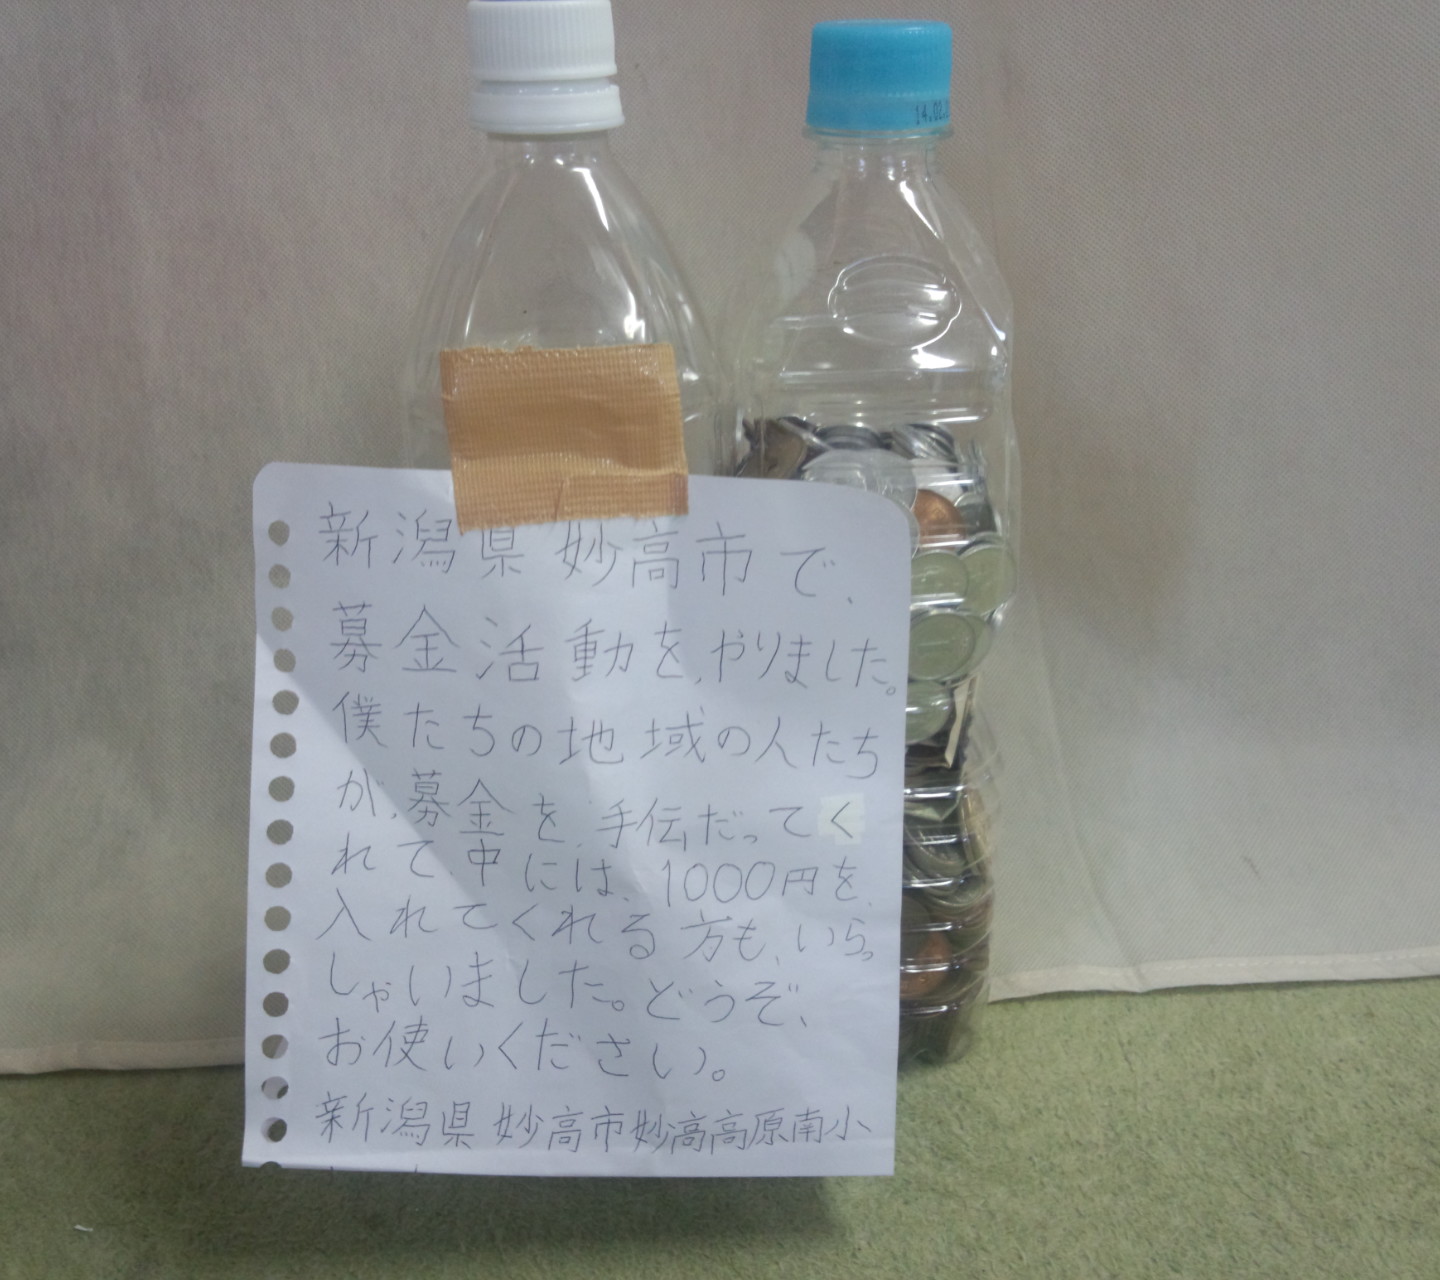 14.02.
新潟県 妙高市で、
募金活動を、やりました。
僕たちの地域の人たち
が、募金を、手伝だってく
れて、中には、1000円を、
入れてくれる方も、いらっ
しゃいました。どうぞ、
お使いください。
新潟県 妙高市妙高高原南小